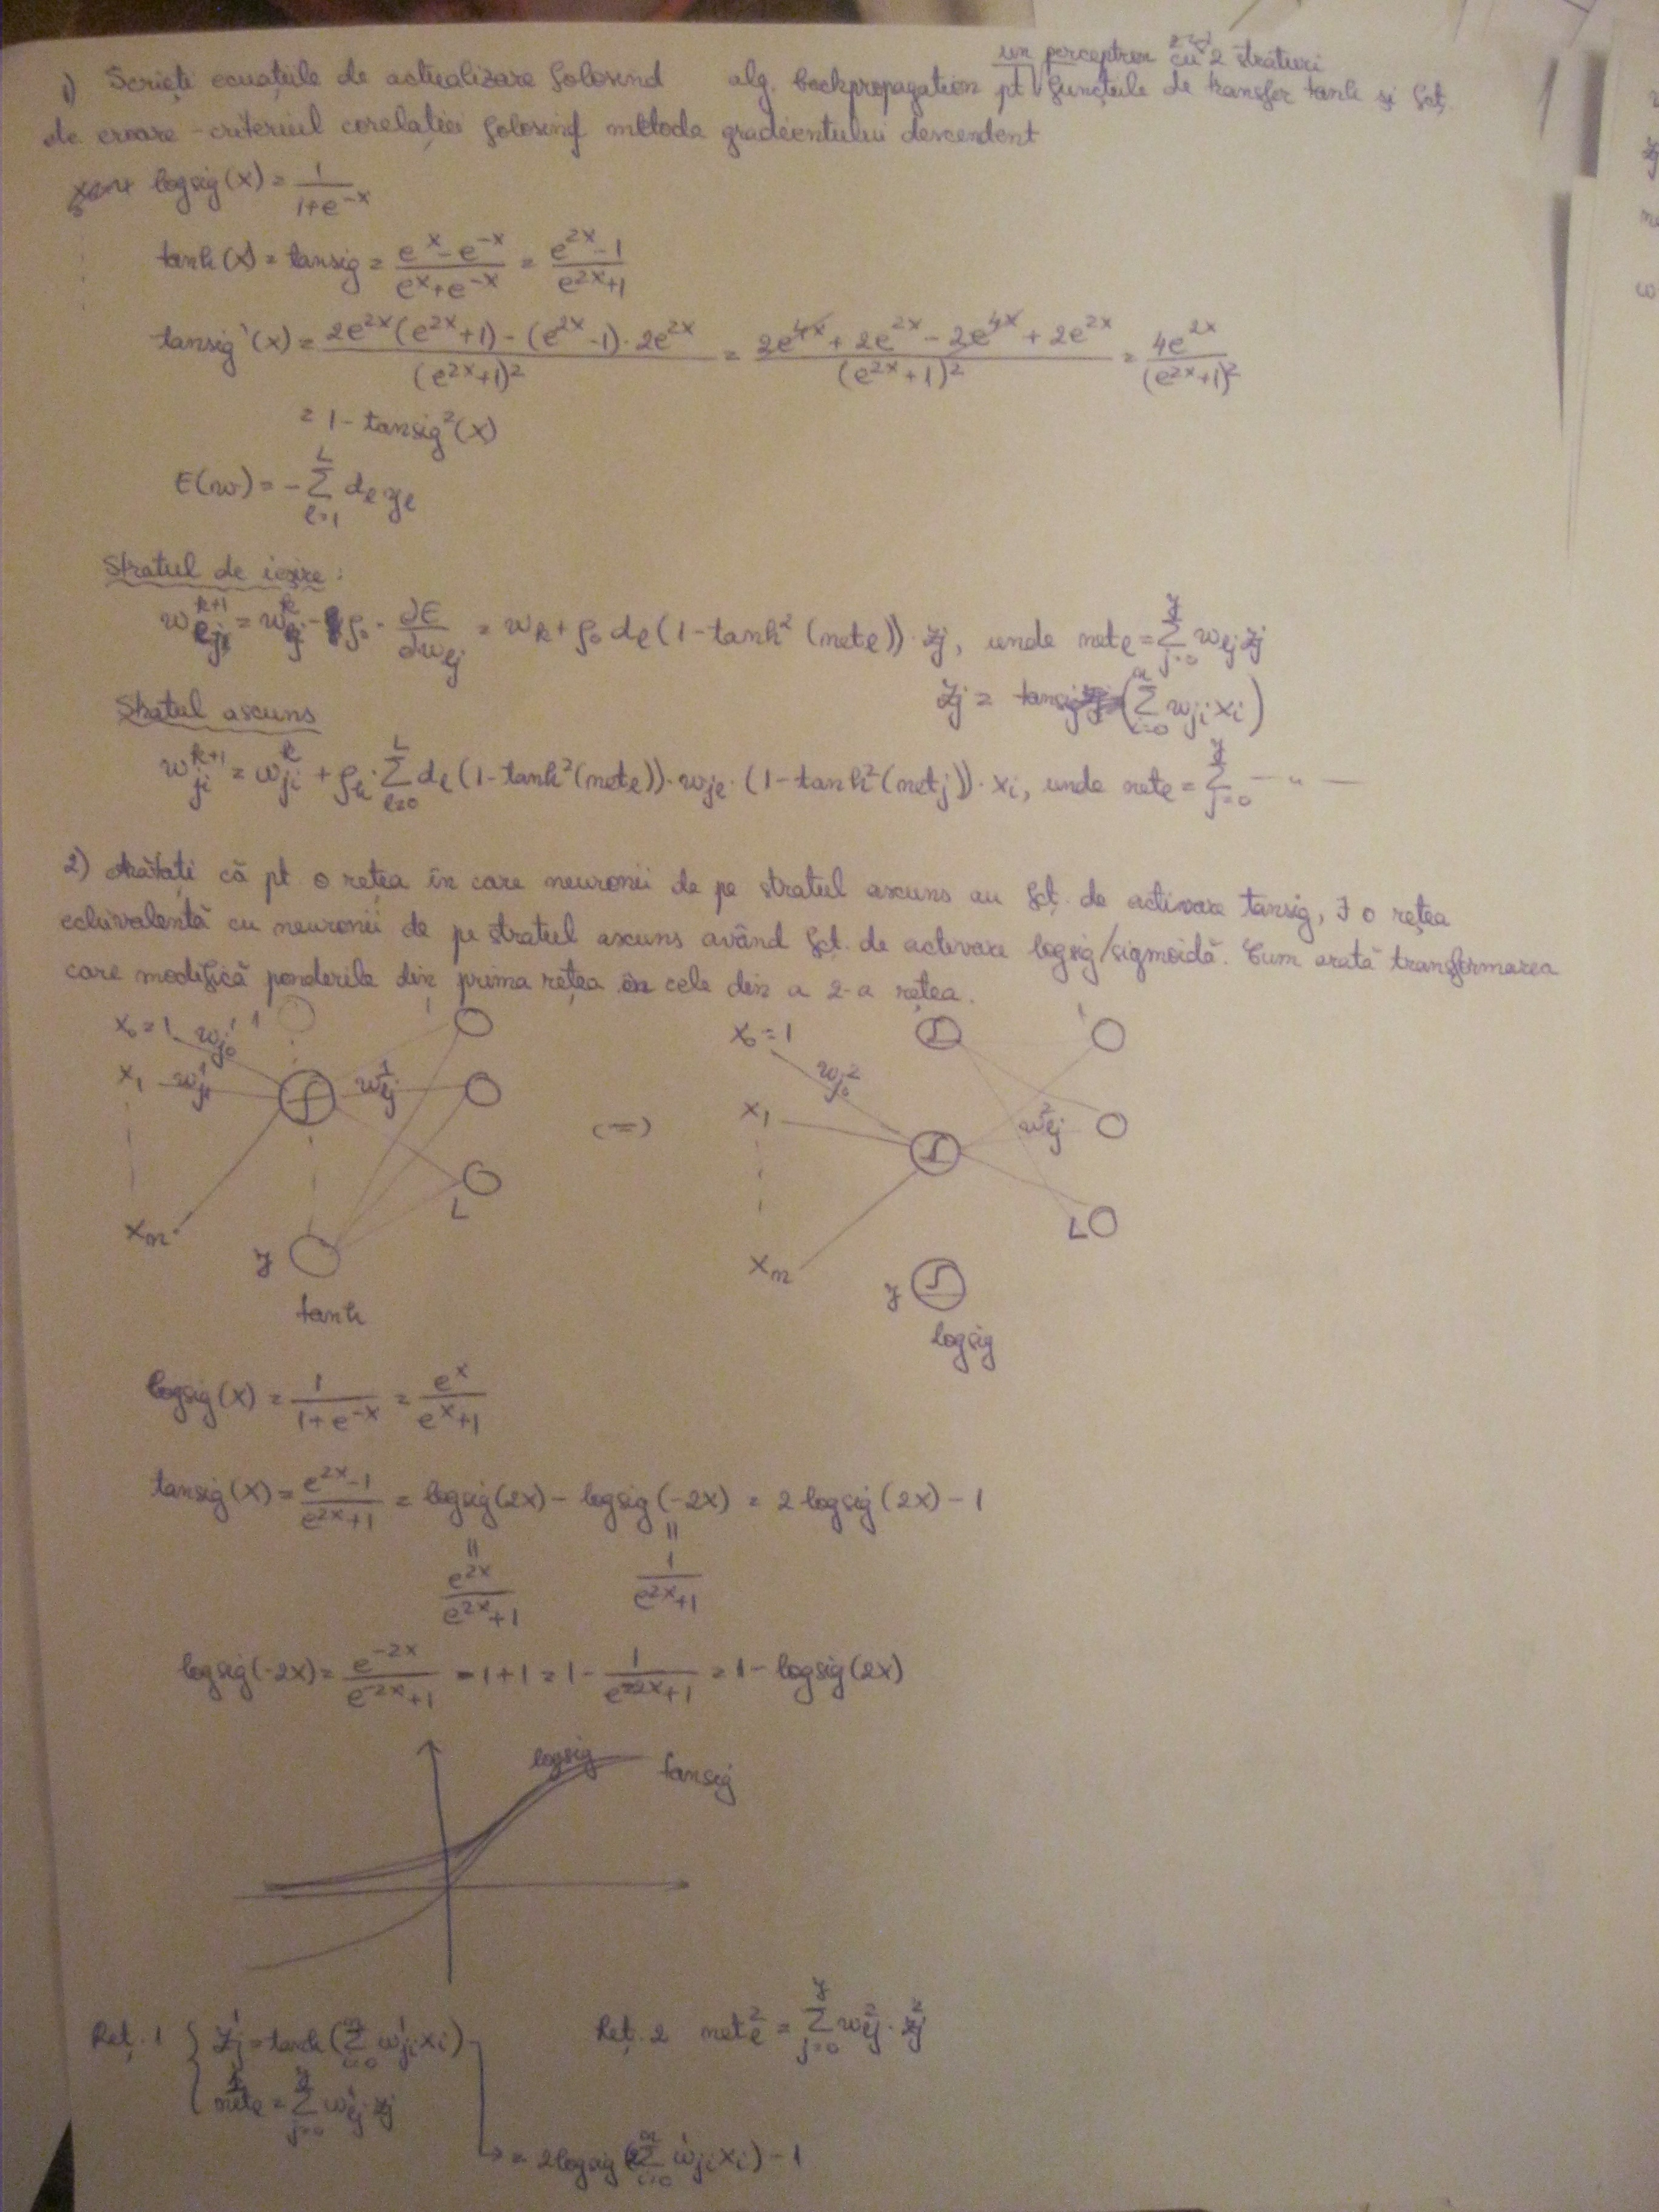 un perceptron cu 2 straturi
1) Scrieți ecuațiile de actualizare folosind alg. backpropagation pt funcțiile de transfer tanh și fct.
de eroare - criteriul corelației folosind metoda gradientului descendent
logsig(x) = 1/(1+e^-x)
tanh(x) = tansig = (e^x - e^-x)/(e^x + e^-x) = (e^2x - 1)/(e^2x + 1)
tansig'(x) = (2e^2x(e^2x+1) - (e^2x-1)·2e^2x)/(e^2x+1)^2 = (2e^4x + 2e^2x - 2e^4x + 2e^2x)/(e^2x+1)^2 = 4e^2x/(e^2x+1)^2
= 1 - tansig^2(x)
E(w) = - Σ_{l=1}^{L} d_l y_l
Stratul de ieșire:
w_lj^{k+1} = w_lj^k - ρ_0 · ∂E/∂w_lj = w_k + ρ_0 d_l (1 - tanh^2(net_l))·z_j, unde net_l = Σ_{j=0}^{J} w_lj z_j
z_j = tansig(Σ_{i=0}^{n} w_ji x_i)
Stratul ascuns
w_ji^{k+1} = w_ji^k + ρ_h · Σ_{l=0}^{L} d_l (1 - tanh^2(net_l))·w_jl·(1 - tanh^2(net_j))·x_i, unde net_l = Σ_{j=0}^{J} — " —
2) Arătați că pt o rețea în care neuronii de pe stratul ascuns au fct. de activare tansig, ∃ o rețea
echivalentă cu neuronii de pe stratul ascuns având fct. de activare logsig/sigmoidă. Cum arată transformarea
care modifică ponderile din prima rețea în cele din a 2-a rețea.
x_0 = 1 w_j0^1 1 1
x_1 w_j1^1 w_lj^1
x_n
J
L
tanh
(=)
x_0 = 1 1
w_j0^2
x_1 w_lj^2
x_n
J
L
logsig
logsig(x) = 1/(1+e^-x) = e^x/(e^x+1)
tansig(x) = (e^2x - 1)/(e^2x + 1) = logsig(2x) - logsig(-2x) = 2 logsig(2x) - 1
= e^2x/(e^2x+1) = 1/(e^2x+1)
logsig(-2x) = e^-2x/(e^-2x+1) - 1 + 1 = 1 - 1/(e^-2x+1) = 1 - logsig(2x)
logsig tansig
Reț. 1 { z_j^1 = tanh(Σ_{i=0}^{n} w_ji^1 x_i) Reț. 2 net_l^2 = Σ_{j=0}^{J} w_lj^2 · z_j^2
net_l^1 = Σ_{j=0}^{J} w_lj^1 z_j
→ = 2 logsig(2Σ_{i=0}^{n} w_ji^1 x_i) - 1